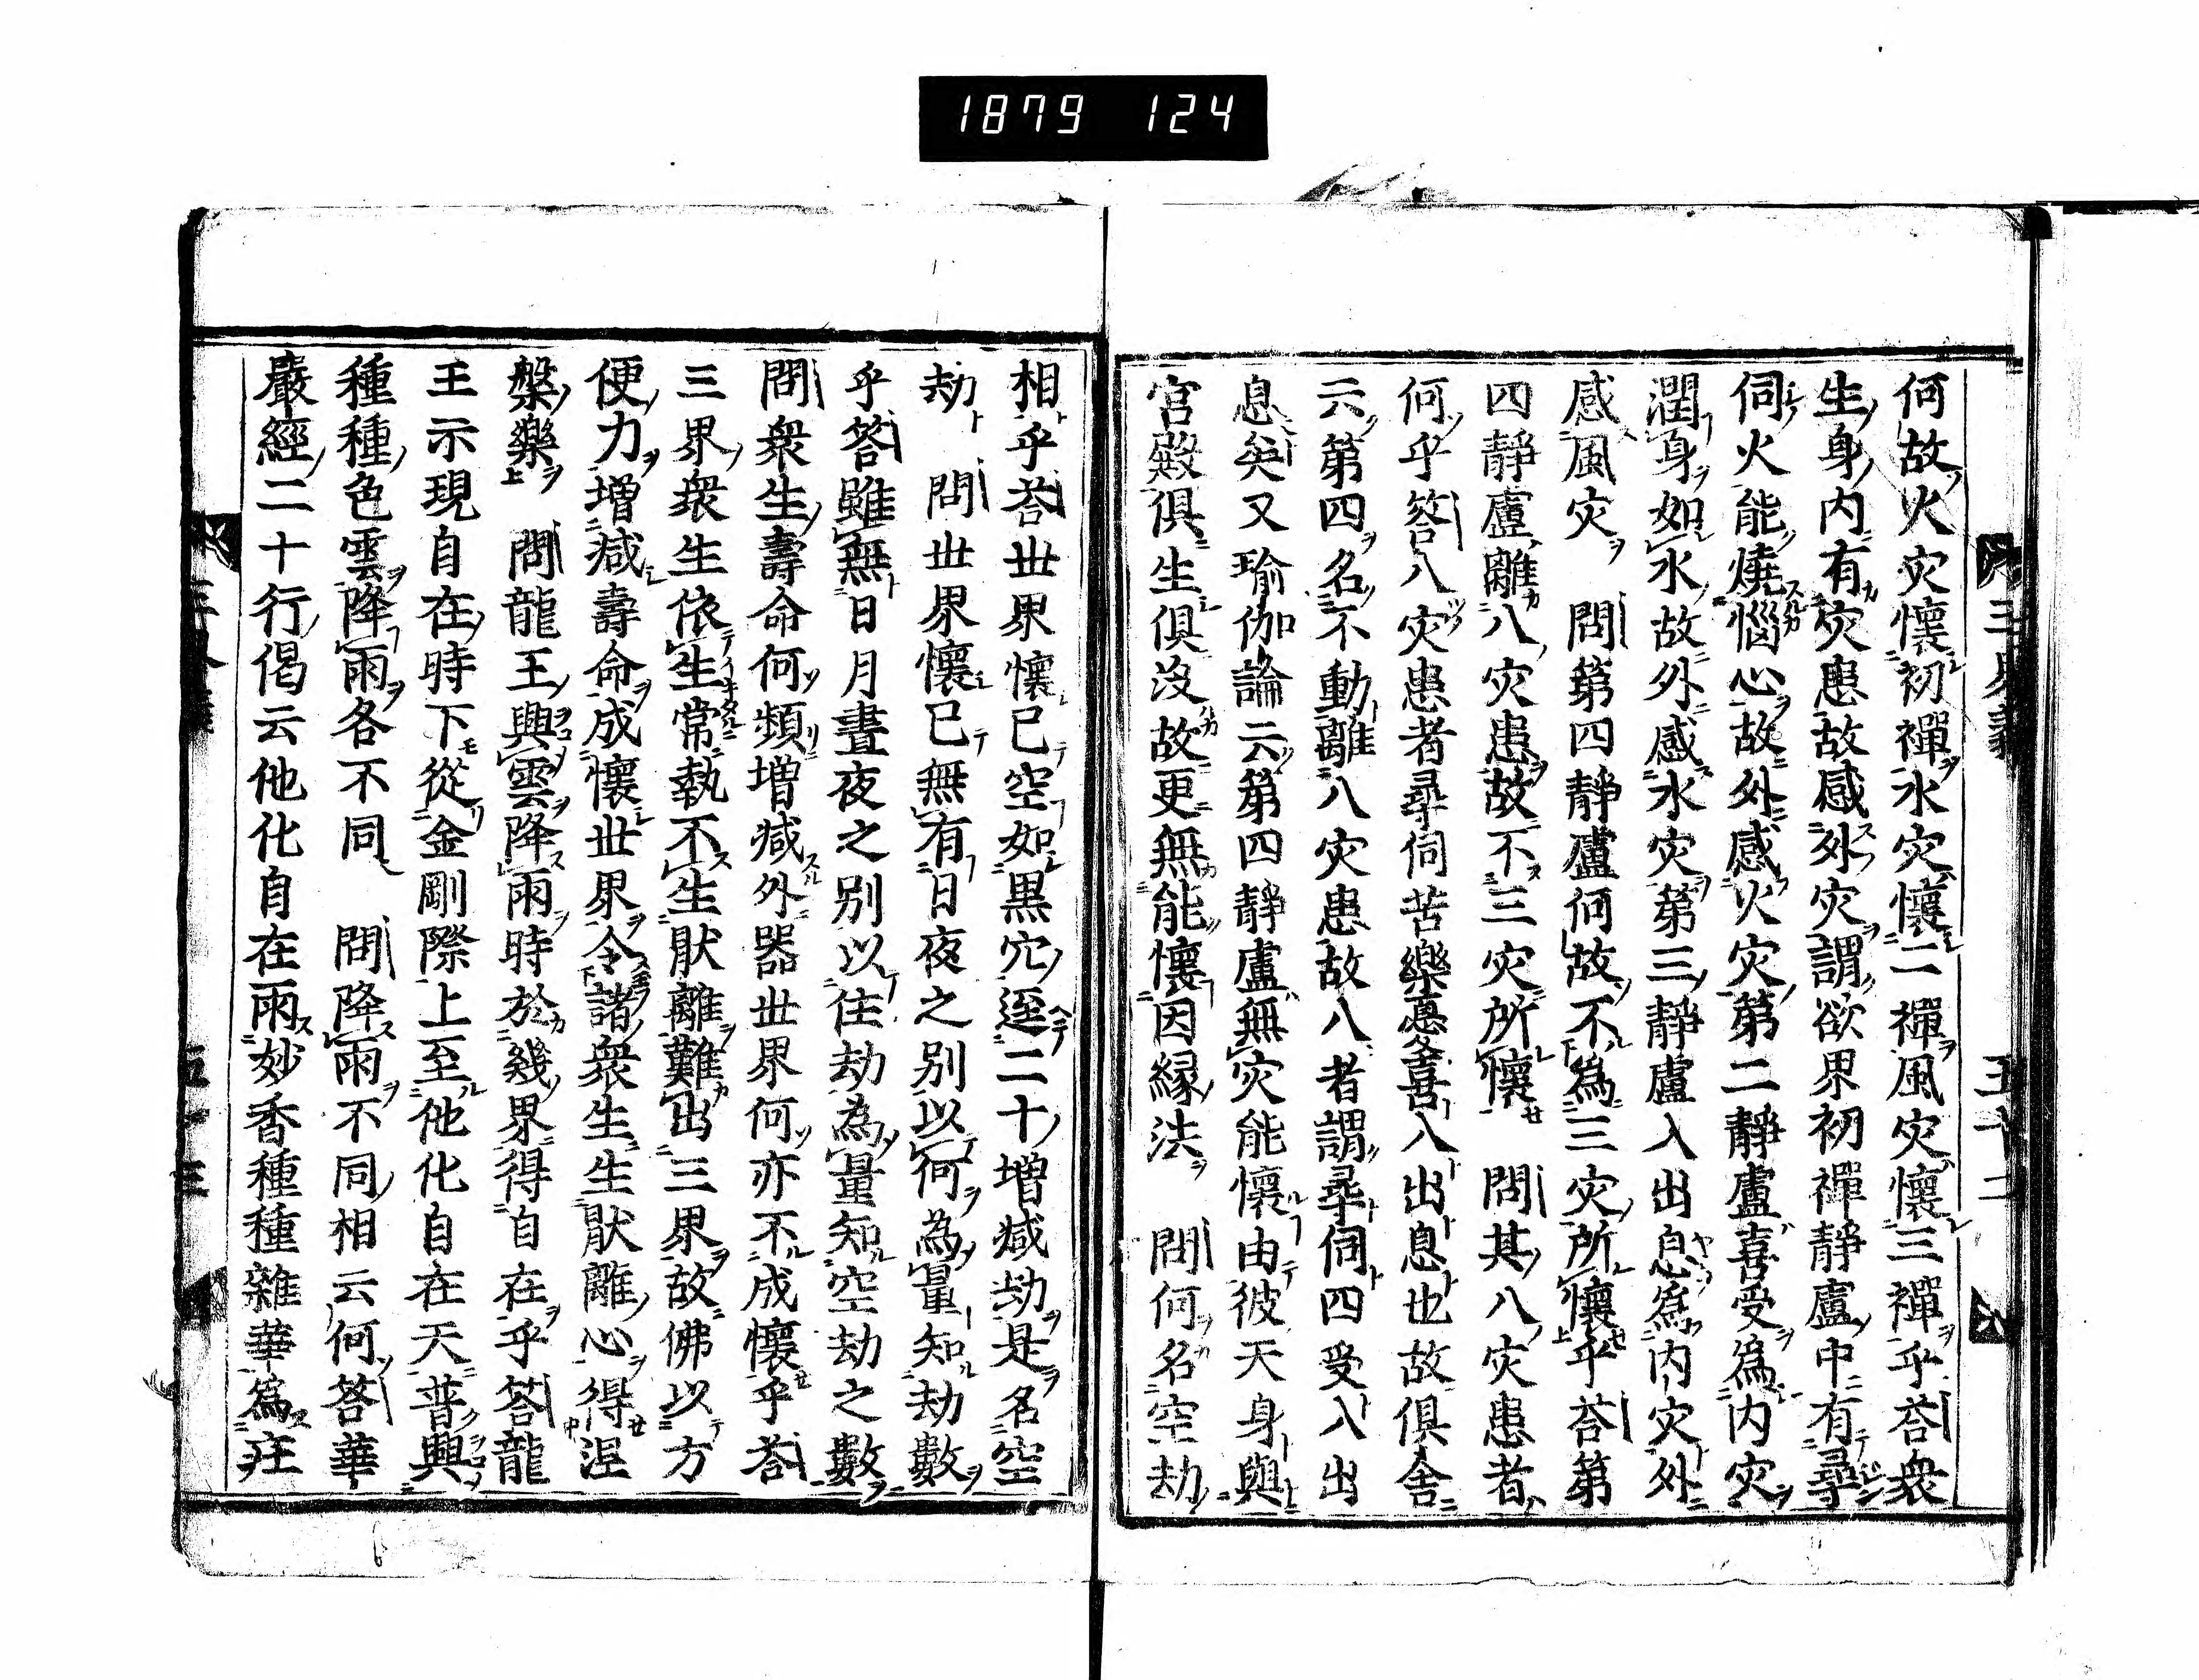 1879 124
何故火灾懷初禪水灾懷二禪風灾懷三禪乎荅衆
生身内有灾患故感外灾謂欲界初禪靜盧中有尋
伺火能燒惱心故外感火灾第二靜盧喜受爲内灾
潤身如水故外感水灾第三靜盧入出息爲内灾外
感風灾 問第四靜盧何故不爲三灾所懷乎荅第
四靜盧離八灾患故不三灾所懷 問其八灾患者
何乎答八灾患者尋伺苦樂憂喜入出息也故俱舍
云第四名不動離八灾患故八者謂尋伺四受入出
息矣又瑜伽論云第四靜盧無灾能懷由彼天身與
宮殿俱生俱没故更無能懷因縁法 問何名空劫
相乎荅世界懷已空如黒穴逕二十増减劫是名空
劫 問世界懷已無有日夜之别以何為量知劫數
乎答雖無日月晝夜之别以住劫為量知空劫之數
問衆生壽命何頻増减外器世界何亦不成懷乎荅
三界衆生依生常執不生猒離難出三界故佛以方
便力増减壽命成懷世界令諸衆生生猒離心得涅
槃樂 問龍王興雲降雨時於幾界得自在乎荅龍
王示現自在時下從金剛際上至他化自在天普興
種種色雲降雨各不同 問降雨不同相云何荅華
嚴經二十行偈云他化自在雨妙香種種雜華爲莊